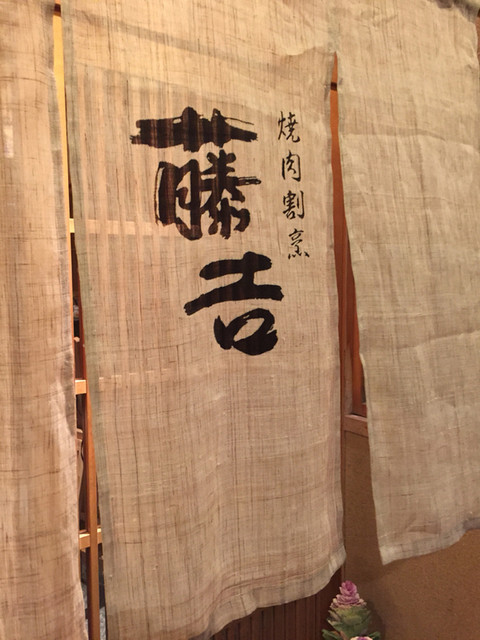 焼肉割烹
藤吉